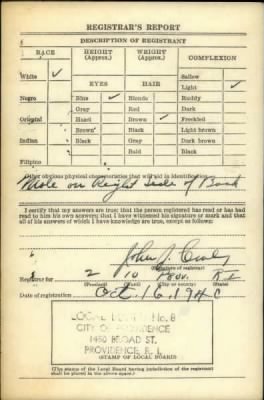 REGISTRAR'S REPORT
DESCRIPTION OF REGISTRANT
RACE HEIGHT (Approx.) WEIGHT (Approx.) COMPLEXION
White ✓ Sallow
EYES HAIR Light ✓
Negro Blue ✓ Blonde Ruddy
Gray Red Dark
Oriental Hazel Brown ✓ Freckled
Brown Black Light brown
Indian Black Gray Dark brown
Bald Black
Filipino
Other obvious physical characteristics that will aid in identification
Mole on Right Side of Back
I certify that my answers are true; that the person registered has read or has had
read to him his own answers; that I have witnessed his signature or mark and that
all of his answers of which I have knowledge are true, except as follows:
John J.
(Signature of registrar)
Registrar for 2 10 Prov. R I
(City or county) (State)
Date of registration Oct. 16, 1940
LOCAL BOARD No. 8
CITY OF PROVIDENCE
1450 BROAD ST.
PROVIDENCE, R. I.
(STAMP OF LOCAL BOARD)
(The stamp of the Local Board having jurisdiction of the registrant
shall be placed in the above space.)